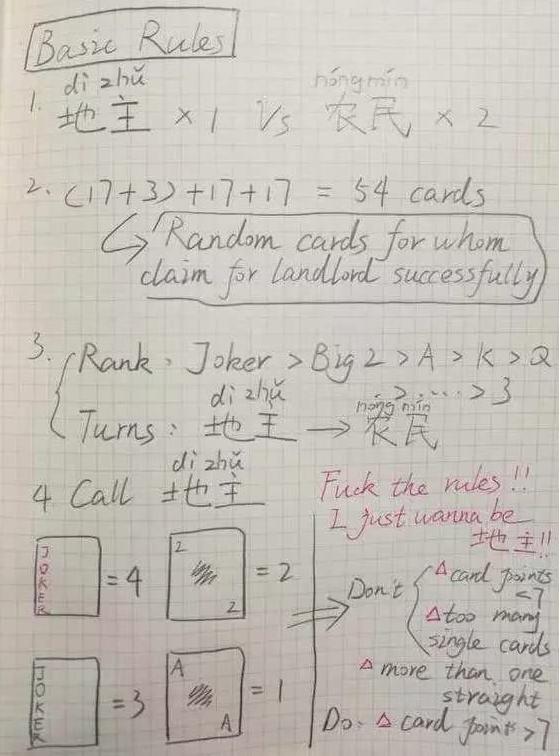 Basic Rules
dì zhǔ nóng mín
1. 地主 × 1 Vs 农民 × 2
2. (17+3)+17+17 = 54 cards
Random cards for whom
claim for landlord successfully
3. Rank: Joker > Big 2 > A > K > Q
> ..... > 3
dì zhǔ nóng mín
Turns: 地主 → 农民
dì zhǔ
4 Call 地主
JOKER = 4
2 2 = 2
JOKER = 3
A A = 1
Fuck the rules !!
I just wanna be
地主!!
Don't △ card points
< 7
△ too many
single cards
△ more than one
straight
Do: △ card points > 7